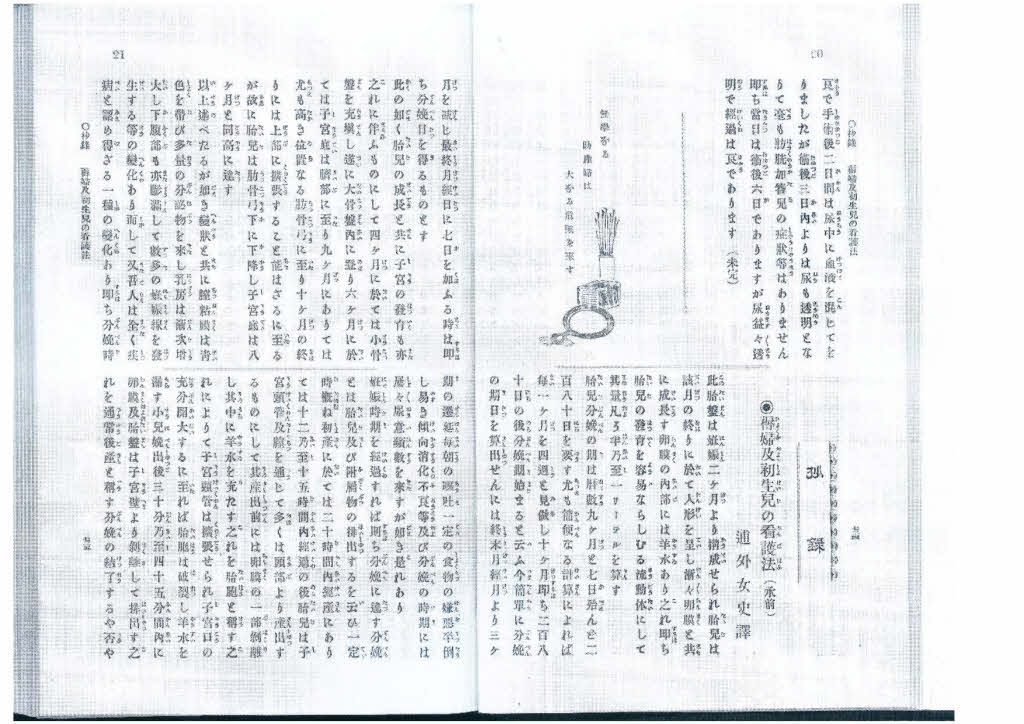 20
○抄錄　孀婦及初生兒の看護法
良で手術後二日間は尿中に血液を混じてを
りましたが術後三日內よりは尿も透明とな
りて毫も膀胱加答兒の症狀等はありません
即ち當日は術後六日でありますが尿益々透
明で經過は良であります（未完）
抄錄
◉孀婦及初生兒の看護法（承前）
通外女史譯
此胎盤は姙娠二ケ月より構成せられ胎兒は
該月の終りに於て人形を呈し漸々卵膜と共
に成長す卵膜の內部には羊水あり之れ即ち
胎兒の發育を容易ならしむる流動体にして
其量凡そ半乃至一リーテルを算す
胎兒分娩の期は曆數九ケ月と七日殆んと二
百八十日を要す尤も簡便なる計算によれば
每一ケ月を四週と見做し十ケ月即ち二百八
十日の後分娩期始まると云ふ今簡單に分娩
の期日を算出せんには終末月經月より三ケ
21
月を減じ最終月經日に七日を加ふる時は即
ち分娩日を得るものとす
此の如く胎兒の成長と共に子宮の發育も亦
之れに伴ふものにして四ケ月に於ては小骨
盤を充塡し遂に大骨盤內に登り六ケ月に於
ては子宮底は臍部に至り九ケ月にありては
尤も高き位置なる肋骨弓に至り十ケ月の終
りには上部に擴張すること能はざるに至る
が故に胎兒は肋骨弓下に下降し子宮底は八
ケ月と同高に達す
以上述べたるが如き變狀と共に膣粘膜は靑
色を帶び多量の分泌物を來し乳房は漸次增
大し下腹部も亦膨滿して數多の姙娠線を發
生する等の變化あり而して又吾人は全く疾
病と認め得ざる一種の變化あり即ち分娩時
期の遷延每朝の嘔吐一定の食物の嫌惡卒倒
し易き傾向消化不良等及び分娩の時期には
屢々尿意頻數を來すが如き是れあり
姙娠時期を經過すれば則ち分娩に達す分娩
とは胎兒及び附屬物の排出するを云ひ一定
時槪ね初產に於ては二十時間內經產にあり
ては十二乃至十五時間內經過の後胎兒は子
宮頸管及膣を通じて多くは頭部より產出す
るものにして其產出前には卵膜の一部剝離
し其中に羊水を充たす之れを胎胞と稱す之
れによりて子宮頸管は擴張せられ子宮口の
充分開大するに至れば胎胞は破裂し羊水を
漏す小兒娩出後三十分乃至四十五分間內に
卵膜及胎盤は子宮壁より剝離して排出す之
れを通常後產と稱す分娩の結了するや否や
○抄錄　孀婦及初生兒の看護法